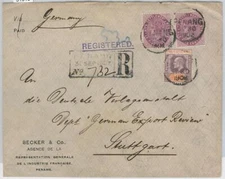 Via
Germany
PAID
REGISTERED
PENANG
No. 732 R
An
die Deutsche Verlagsanstalt
Dept "German Export Review"
Stuttgart
BECKER & Co.
AGENCE DE LA
REPRÉSENTATION GÉNÉRALE
DE L'INDUSTRIE FRANÇAISE,
PENANG.